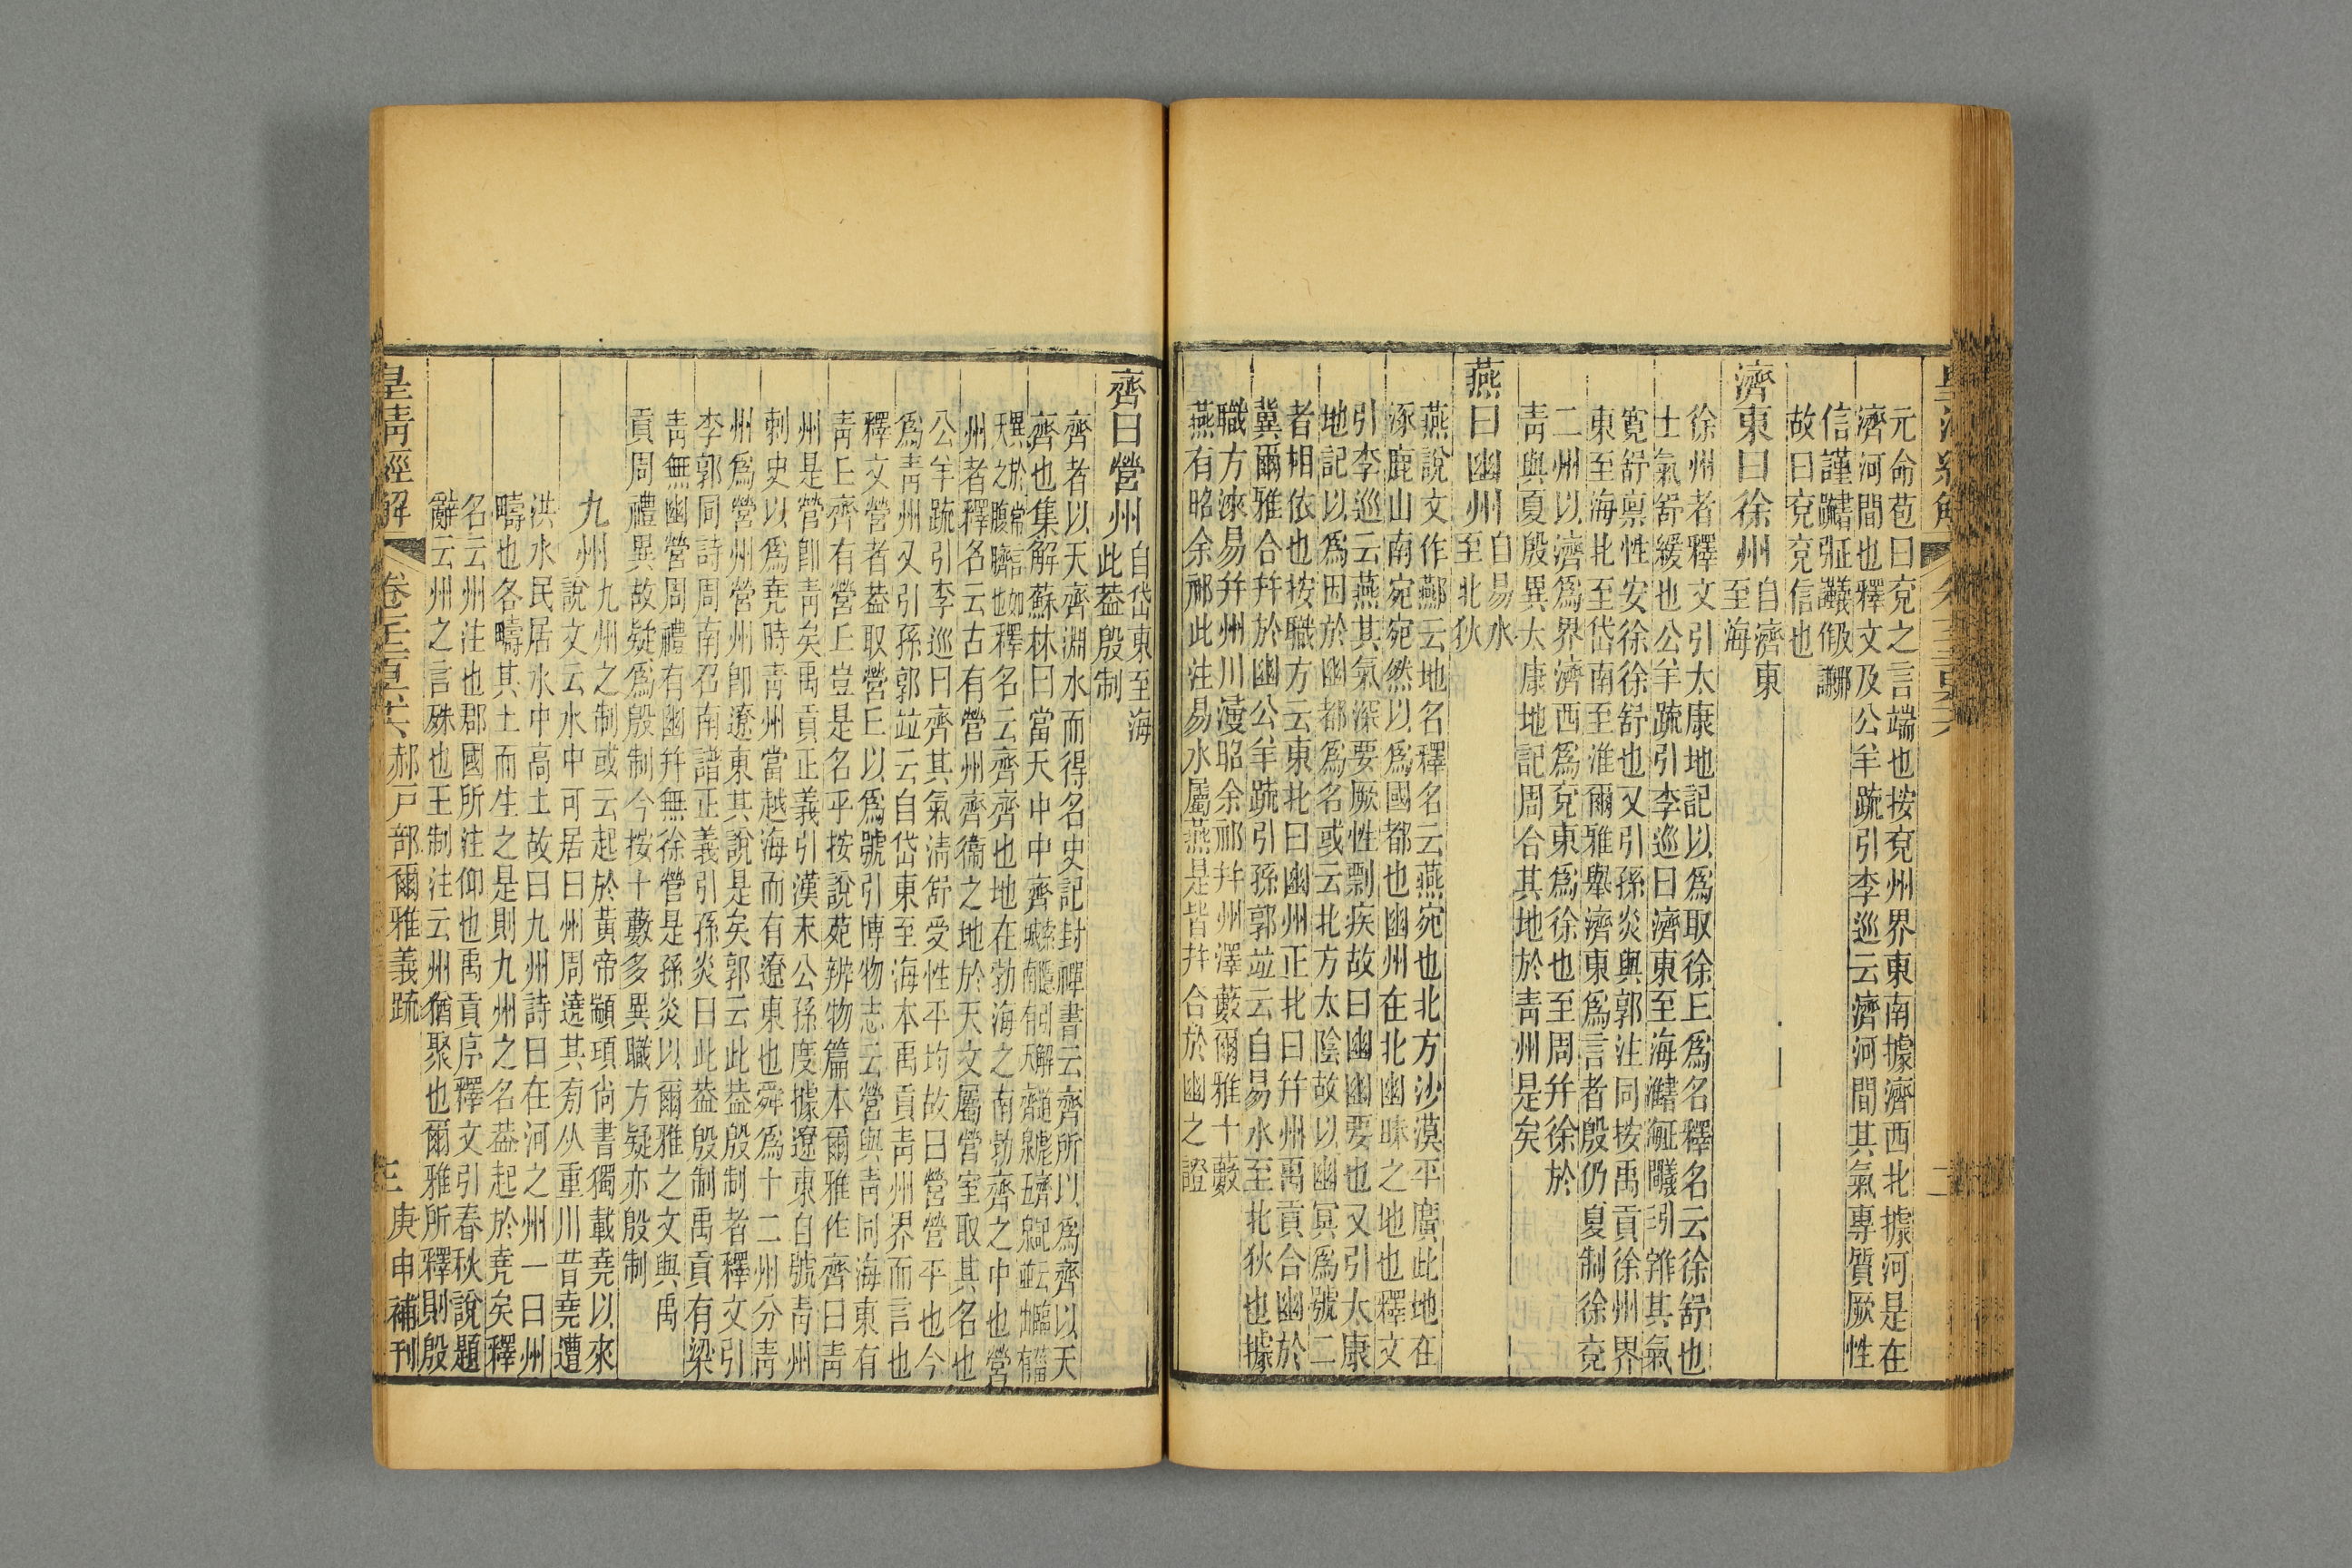 元命苞曰兗之言端也按兗州界東南據濟西北據河是在
濟河間也釋文及公羊疏引李巡云濟河間其氣專質厥性
信謹
故曰兗兗信也
濟東曰徐州
自濟東
至海
徐州者釋文引太康地記以爲取徐丘爲名釋名云徐舒也
土氣舒緩也公羊疏引李巡曰濟東至海其氣
寛舒禀性安徐徐舒也又引孫炎與郭注同按禹貢徐州界
東至海北至岱南至淮爾雅舉濟東爲言者殷仍夏制徐兗
二州以濟爲界濟西爲兗東爲徐也至周幷徐於
青與夏殷異太康地記周合其地於青州是矣
燕曰幽州
自易水
至北狄
燕說文作酀云地名釋名云燕宛也北方沙漠平廣此地在
涿鹿山南宛宛然以爲國都也幽州在北幽昧之地也釋文
引李巡云燕其氣深要厥性剽疾故曰幽幽要也又引太康
地記以爲因於幽都爲名或云北方太陰故以幽冥爲號二
者相依也按職方云東北曰幽州正北曰幷州禹貢合幽於
冀爾雅合幷於幽公羊疏引孫郭竝云自易水至北狄也據
職方淶易幷州川濅昭余祁幷州澤藪爾雅十藪
燕有昭余祁此注易水屬燕是皆幷合於幽之證
齊曰營州
自岱東至海
此葢殷制
齊者以天齊淵水而得名史記封禪書云齊所以爲齊以天
齊也集解蘇林曰當天中中齊
異於常言如天之腹臍也釋名云齊齊也地在勃海之南勃齊之中也營
州者釋名云古有營州齊衞之地於天文屬營室取其名也
公羊疏引李巡曰齊其氣清舒受性平均故曰營營平也今
爲青州又引孫郭竝云自岱東至海本禹貢青州界而言也
釋文營者葢取營丘以爲號引博物志云營與青同海東有
青丘齊有營丘豈是名乎按說苑辨物篇本爾雅作齊曰青
州是營卽青矣禹貢正義引漢末公孫度據遼東自號青州
刺史以爲堯時青州當越海而有遼東也舜爲十二州分青
州爲營州營州卽遼東其說是矣郭云此葢殷制者釋文引
李郭同詩周南召南譜正義引孫炎曰此葢殷制禹貢有梁
青無幽營周禮有幽幷無徐營是孫炎以爾雅之文與禹
貢周禮異故疑爲殷制今按十藪多異職方疑亦殷制
九州
九州之制或云起於黃帝顓頊尚書獨載堯以來
說文云水中可居曰州周遶其旁从重川昔堯遭
洪水民居水中高土故曰九州詩曰在河之州一曰州
疇也各疇其土而生之是則九州之名葢起於堯矣釋
名云州注也郡國所注仰也禹貢序釋文引春秋說題
辭云州之言殊也王制注云州猶聚也爾雅所釋則殷
皇清經解 卷千二百六十六 郝戸部爾雅義疏 三 庚申補刊